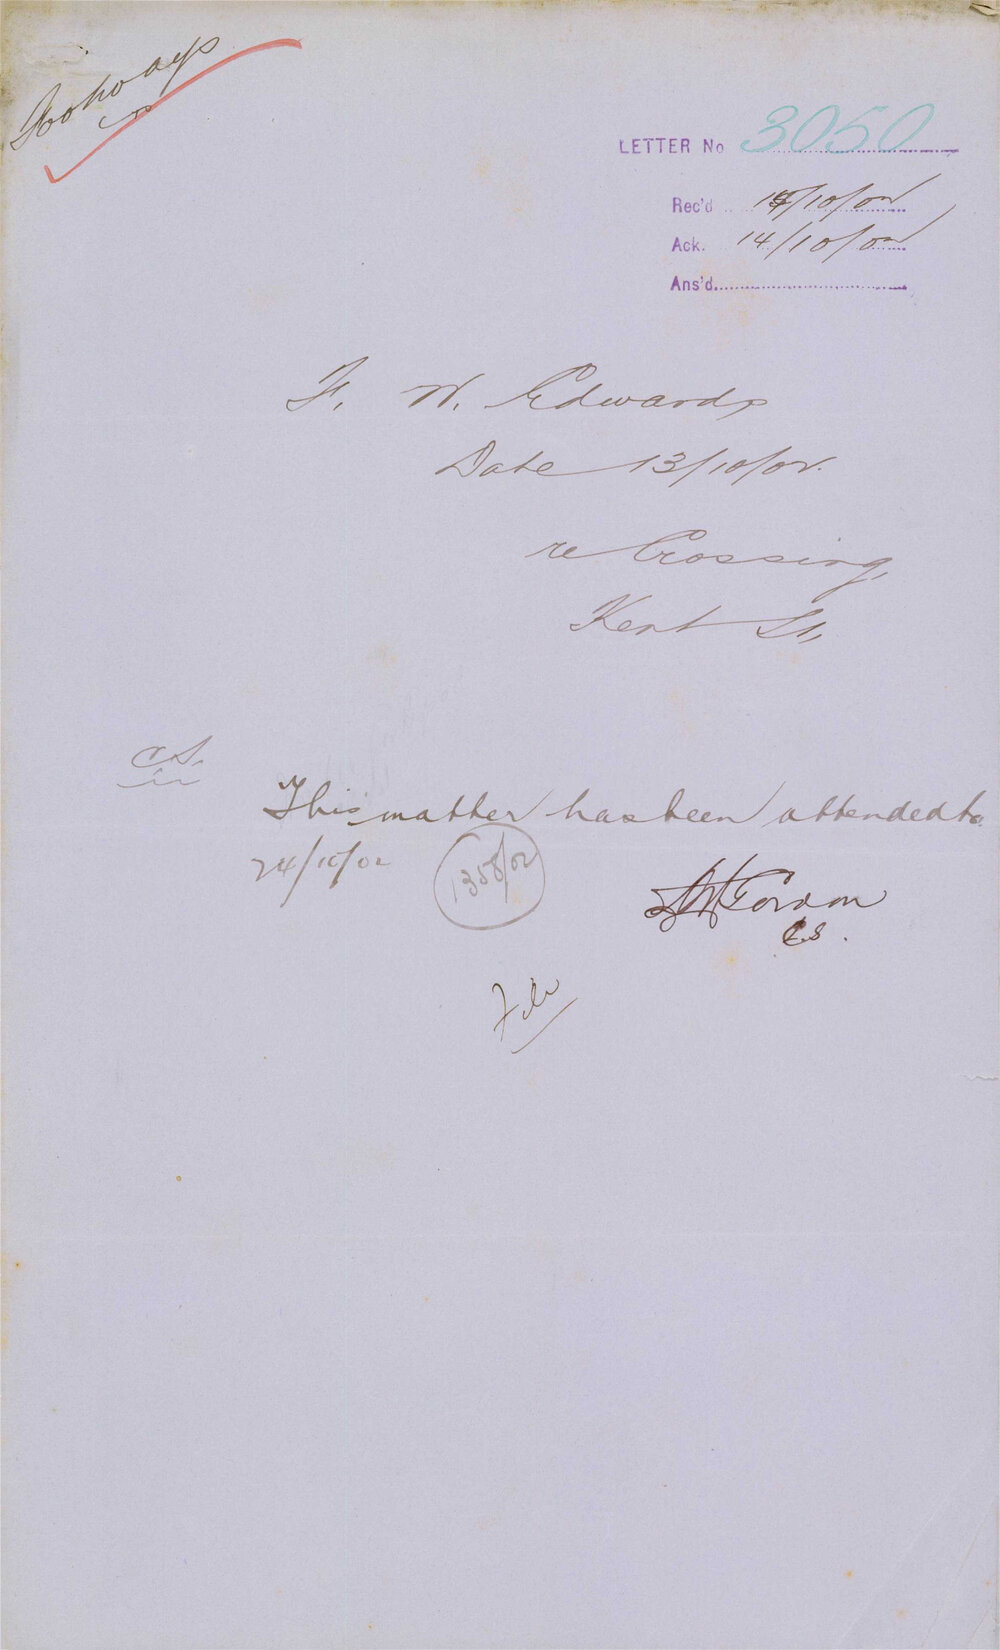 Footways
LETTER No 3050
Rec'd 14/10/02
Ack. 14/10/02
Ans'd
F. W. Edwards
Date 13/10/02.
re Crossing,
Kent St,
C.S.
This matter has been attended to
24/10/02
1358/02
Gordon
C.S.
File